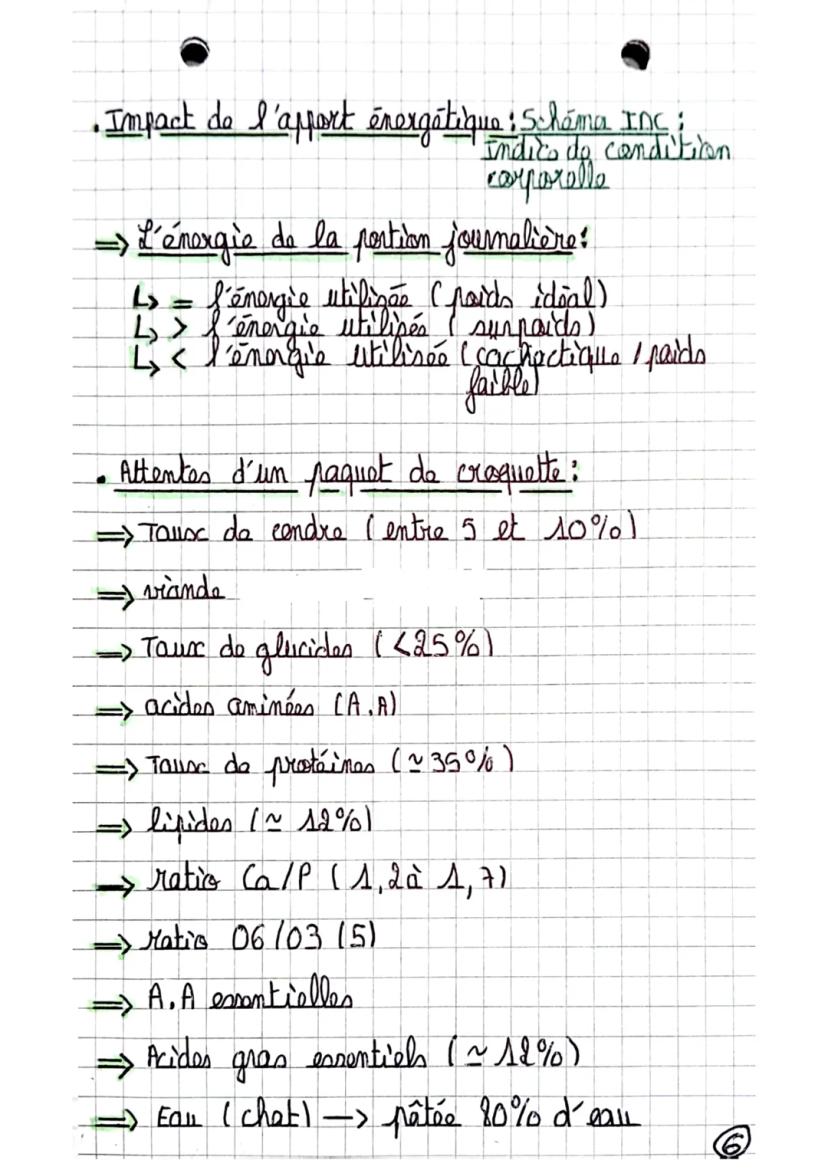 . Impact de l'apport énergétique : Schéma INC :
Indice de condition
corporelle
=> L'énergie de la portion journalière :
↳ = l'énergie utilisée (poids idéal)
↳ > l'énergie utilisés (surpoids)
↳ < l'énergie utilisée (cachectique / poids
faible)
. Attentes d'un paquet de croquette :
=> Taux de cendre (entre 5 et 10%)
=> viande
=> Taux de glucides (<25%)
=> acides aminées (A.A)
=> Taux de protéines (≃ 35%)
=> lipides (≃ 12%)
=> ratio Ca/P (1,2 à 1,7)
=> Ratio O6/O3 (5)
=> A.A essentielles
=> Acides gras essentiels (≃ 12%)
=> Eau (chat) —> pâtée 80% d'eau
6